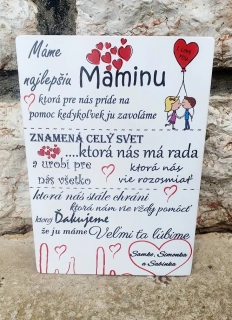 Máme
najlepšiu Maminu
ktorá pre nás príde na
pomoc kedykoľvek ju zavoláme
ZNAMENÁ CELÝ SVET
.....ktorá nás má rada
a urobí pre
nás všetko
ktorá nás
vie rozosmiať
ktorá nás stále chráni
ktorá nám vie vždy pomôcť
ktorej Ďakujeme
že ju máme Veľmi ťa ľúbime
Samko, Simonka
a Sabinka